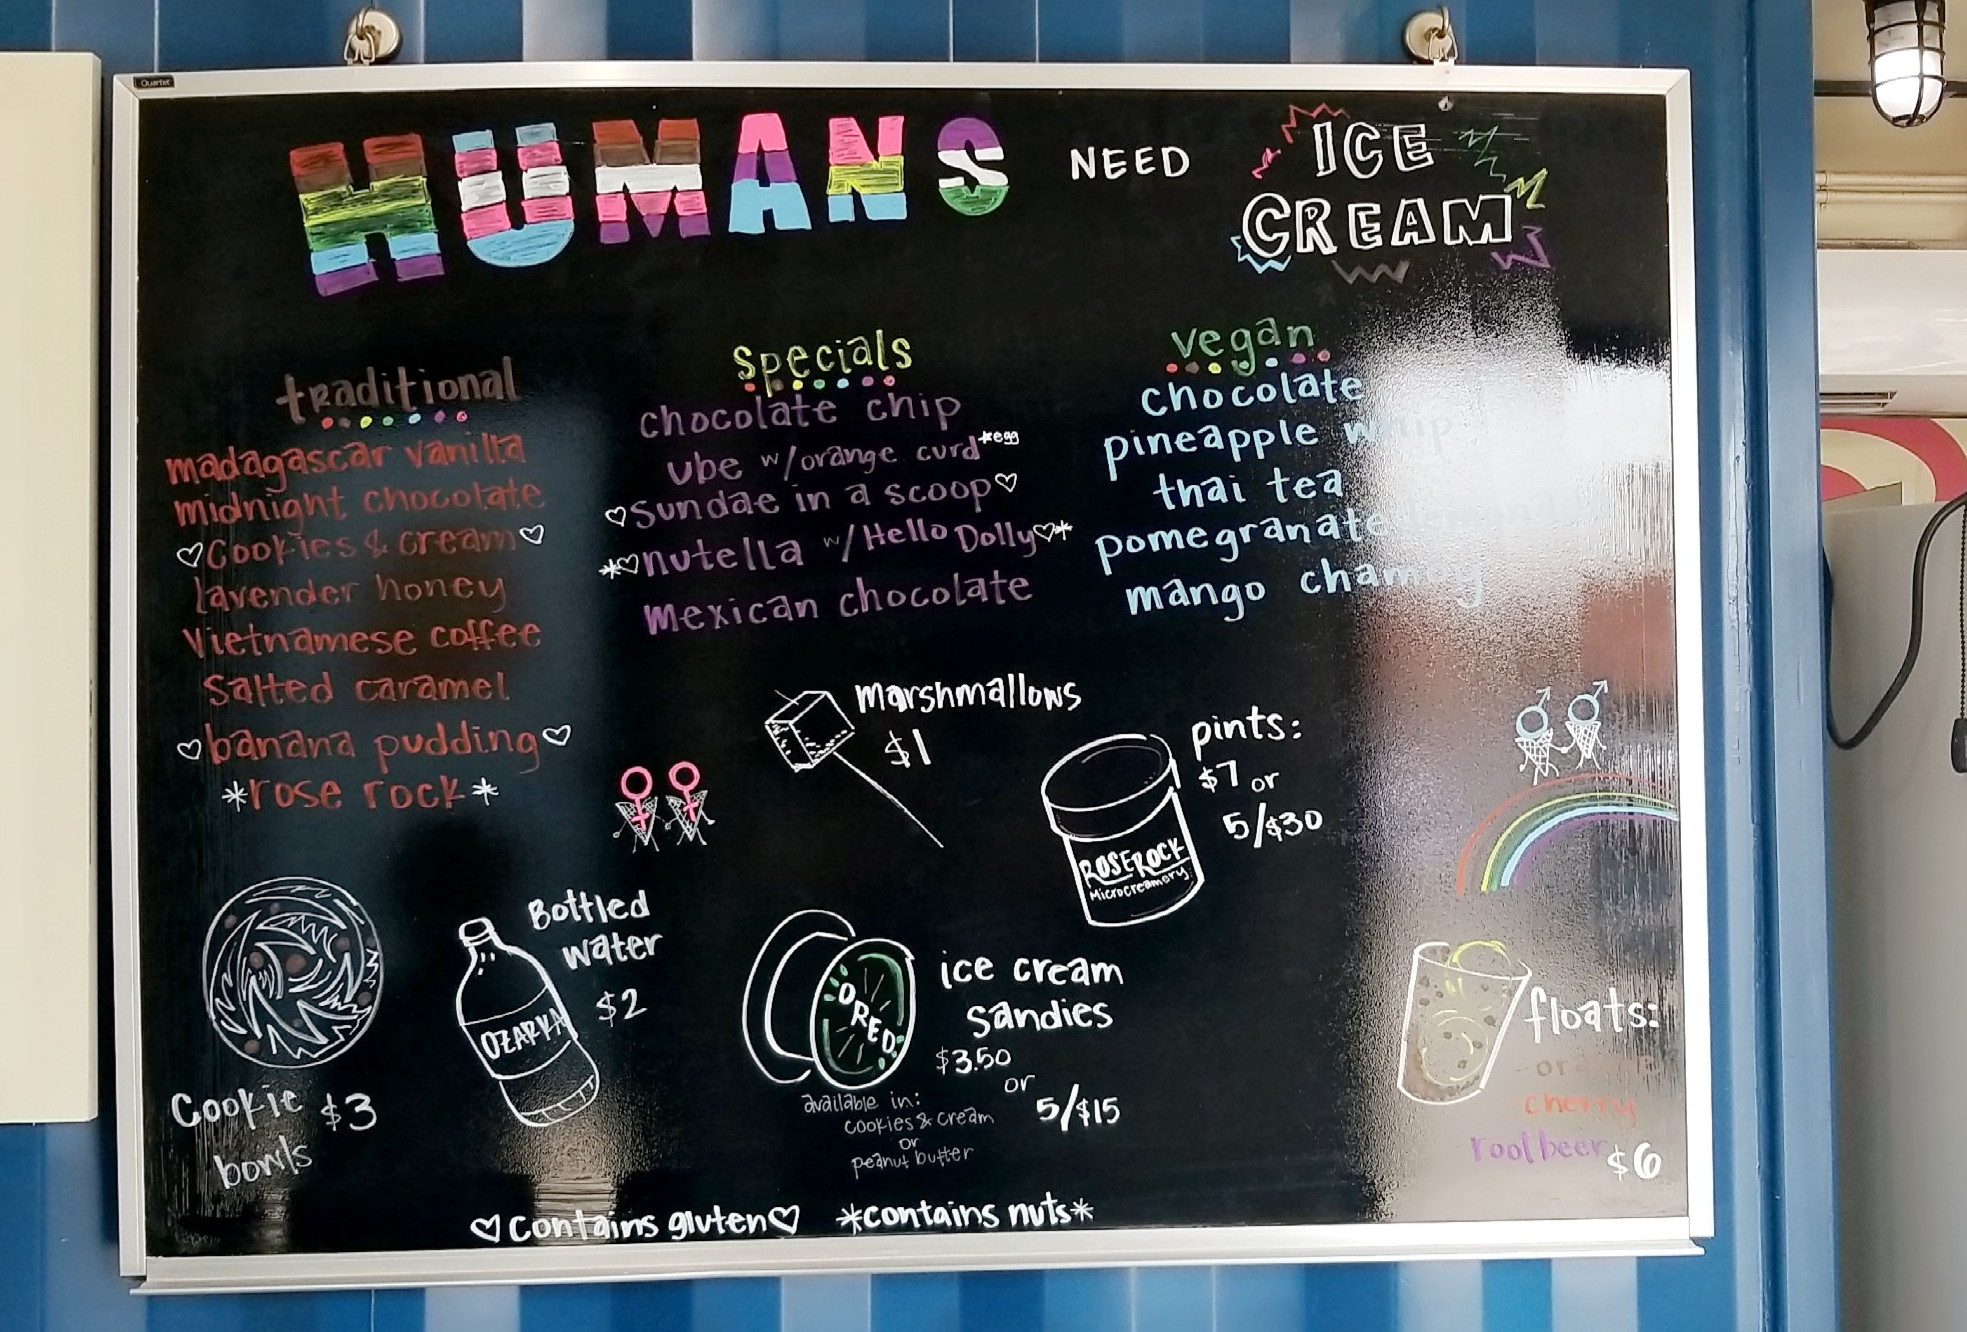 Quartet
HUMANS NEED ICE CREAM
traditional
madagascar vanilla
midnight chocolate
♡Cookies & cream♡
lavender honey
Vietnamese coffee
Salted caramel
♡banana pudding♡
*rose rock*
specials
chocolate chip
ube w/orange curd*egg
♡sundae in a scoop♡
*♡nutella w/Hello Dolly♡*
mexican chocolate
vegan
chocolate
pineapple whip
thai tea
pomegranate
mango
marshmallows
$1
pints:
$7 or
5/$30
ROSEROCK
Microcreamery
Cookie $3
bowls
Bottled
water
$2
OZARKA
OREO
ice cream
sandies
$3.50
or
5/$15
available in:
cookies & cream
or
peanut butter
floats:
cherry
rootbeer $6
♡contains gluten♡ *contains nuts*